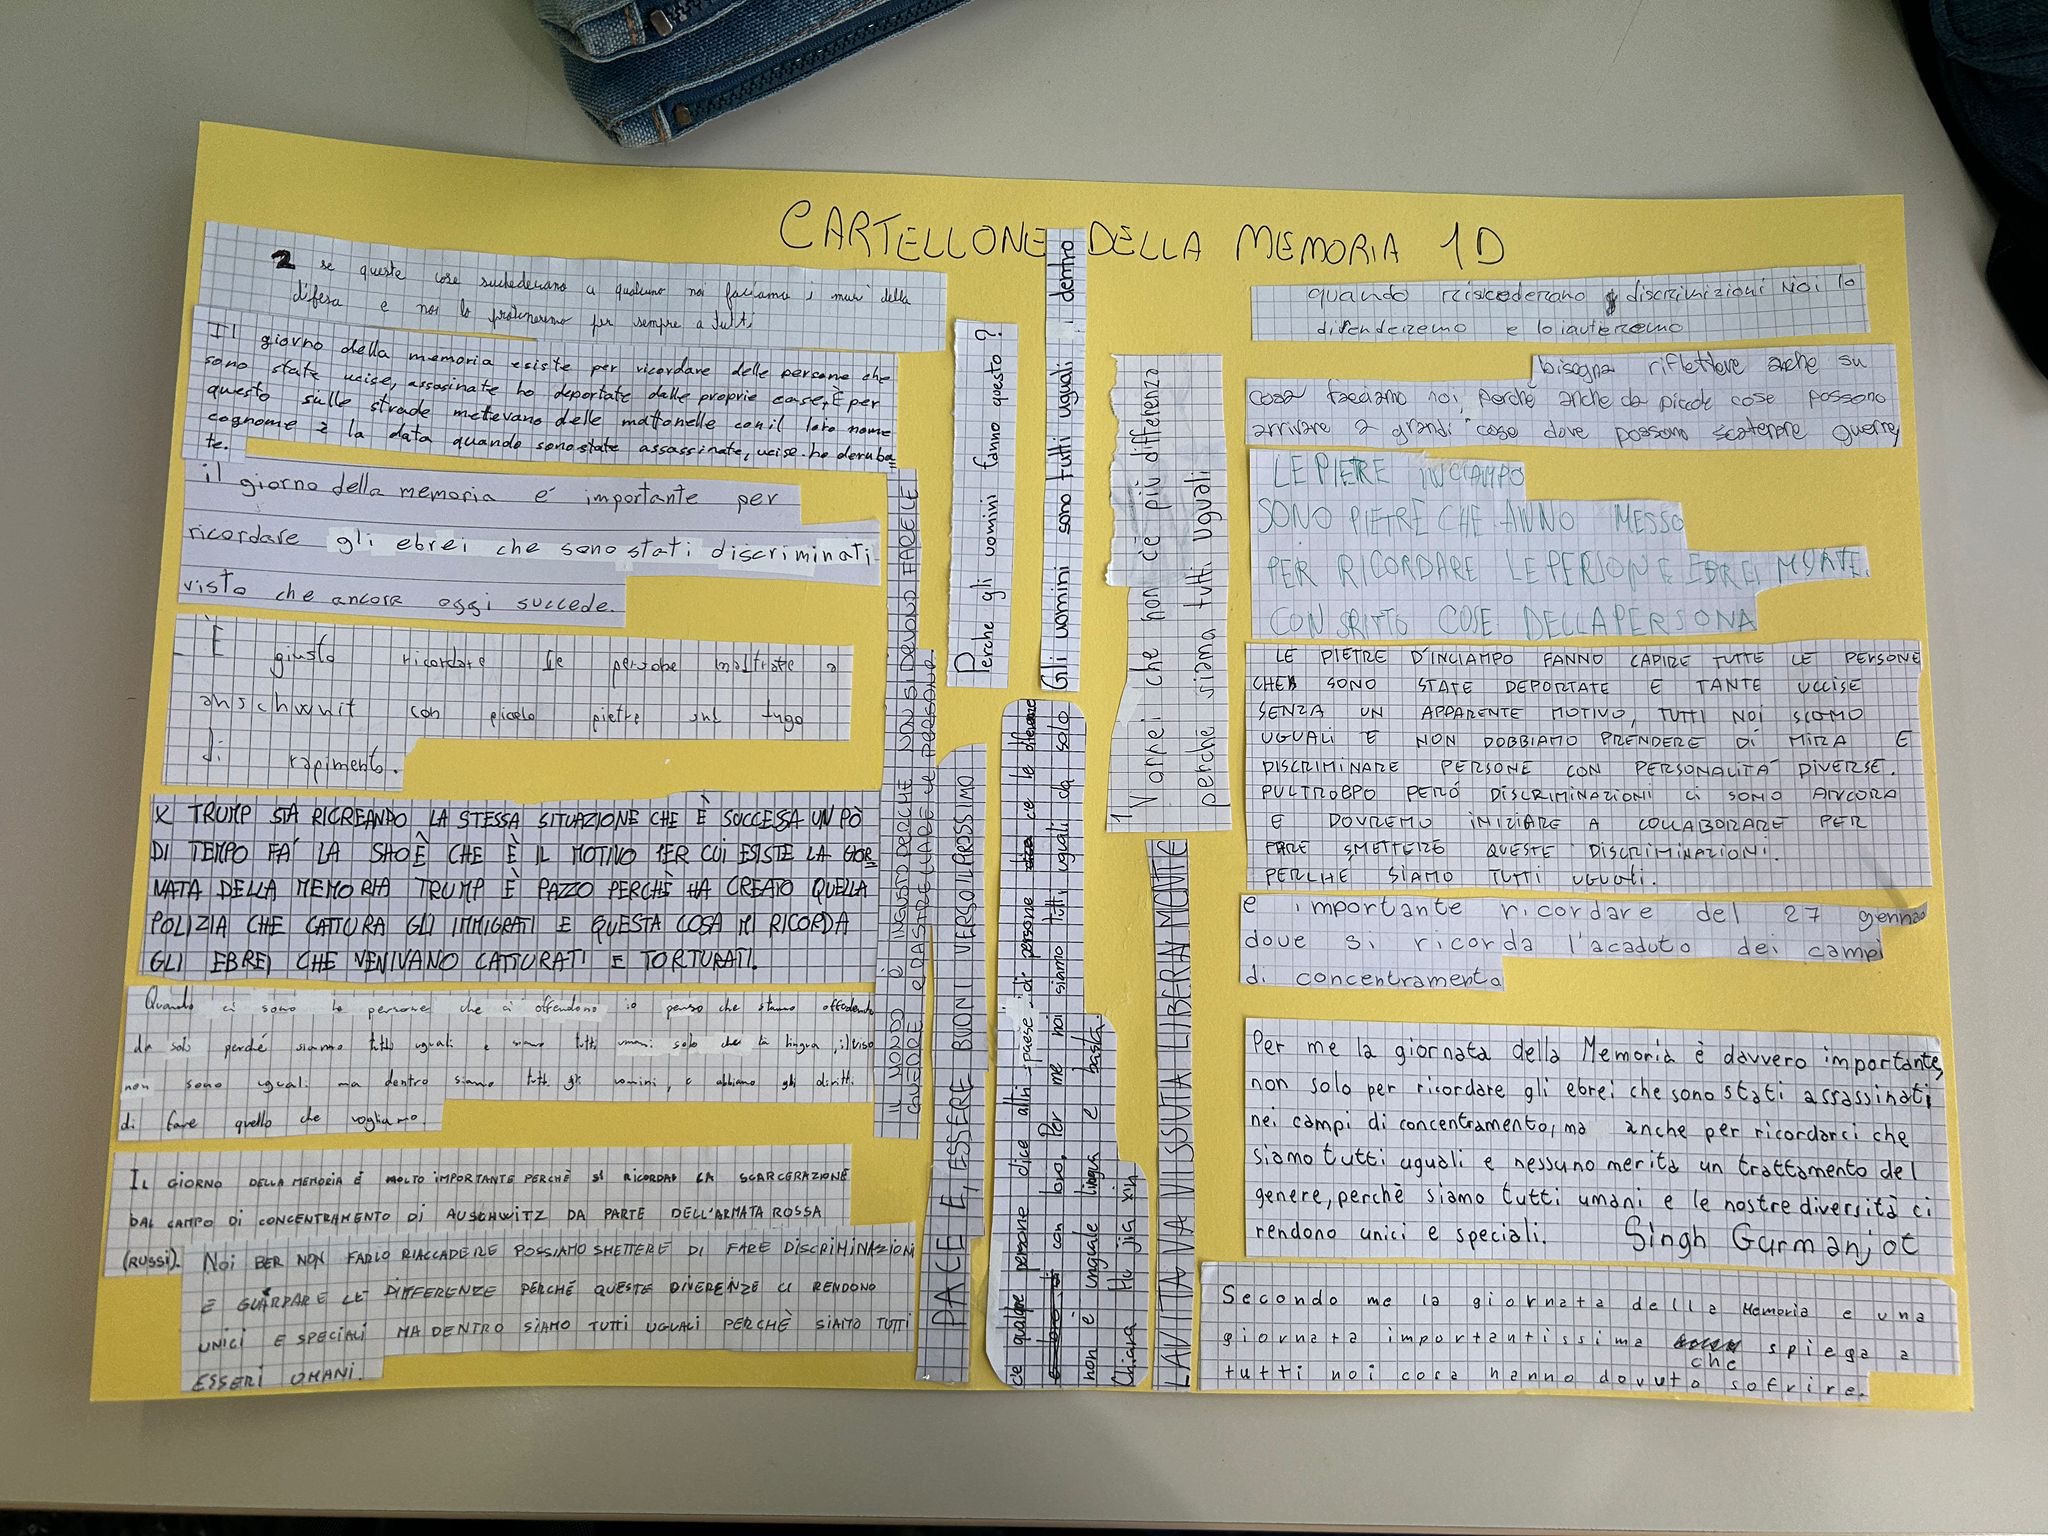 CARTELLONE DELLA MEMORIA 1D
2 se queste cose suchederano a qualcuno noi facciamo i muri della
difesa e noi lo proteneremo per sempre a tutti
Il giorno della memoria esiste per ricordare delle persone che
sono state ucise, assasinate ho deportate dalle proprie case, È per
questo sulle strade metevano delle mattonelle con il loro nome
cognome e la data quando sono state assassinate, ucise ho deruba=
te.
il giorno della memoria e' importante per
ricordare gli ebrei che sono stati discriminati
visto che ancora oggi succede.
È giusto ricordare le persone maltrate a
anschwnit con picolo pietre sul lugo
di rapimento.
X TRUMP STA RICREANDO LA STESSA SITUAZIONE CHE È SUCCESSA UN PÒ
DI TEMPO FÀ LA SHOÈ CHE È IL MOTIVO PER CUI ESISTE LA GIOR=
NATA DELLA MEMORIA TRUMP È PAZZO PERCHÈ HA CREATO QUELLA
POLIZIA CHE CATTURA GLI IMMIGRATI E QUESTA COSA MI RICORDA
GLI EBREI CHE VENIVANO CATTURATI E TORTURATI.
Quando ci sono le persone che ci offendono io penso che stanno offendendo
da solo perché siamo tutti uguali e siamo tutti umani solo che la lingua, il viso
non sono uguali ma dentro siamo tutti gli uomini, e abbiamo gli diritti
di fare quello che vogliamo.
IL GIORNO DELLA MEMORIA È MOLTO IMPORTANTE PERCHÈ SI RICORDA LA SCARCERAZIONE
DAL CAMPO DI CONCENTRAMENTO DI AUSCHWITZ DA PARTE DELL'ARMATA ROSSA
(RUSSI). NOI PER NON FARLO RIACCADERE POSSIAMO SMETTERE DI FARE DISCRIMINAZIONI
E GUARDARE LE DIFFERENZE PERCHÉ QUESTE DIVERENZE CI RENDONO
UNICI E SPECIALI MA DENTRO SIAMO TUTTI UGUALI PERCHÉ SIAMO TUTTI
ESSERI UMANI.
IL MONDO È INGUSTO PERCHE NON SI DEVONO FARE LE
GUERRE E MASTRELLARE LE PERSONE
PACE E, ESSERE BUONI VERSO IL PROSSIMO
Perche gli uomini fanno questo?
Gli uomini sono tutti uguali di dentro
c'e qualque persone dice altri spaese di persone che le
con loro, Per me noi siamo tutti uguali da solo
non è unguale lingua e basta.
Chiara Hu jia xin
1 Vorrei che non c'e più differenza
perche siamo tutti uguali
LA VITTA VA VISSUTA LIBERA MENTE
quando risiccederano discriminizioni Noi lo
difenderezemo e lo iauteremo
bisogna riflettere anche su
cosa facciamo noi, perché anche da piccole cose possono
arrivare a grandi cose dove possono scatenare guerre,
LE PIETRE INCIAMPO
SONO PIETRE CHE ANNO MESSO
PER RICORDARE LE PERSONE EBREI MORTE.
CON SRITTO COSE DELLA PERSONA
LE PIETRE D'INCIAMPO FANNO CAPIRE TUTTE LE PERSONE
CHE SONO STATE DEPORTATE E TANTE UCCISE
SENZA UN APPARENTE MOTIVO, TUTTI NOI SIAMO
UGUALI E NON DOBBIAMO PRENDERE DI MIRA E
DISCRIMINARE PERSONE CON PERSONALITA' DIVERSE.
PULTROPPO PERÒ DISCRIMINAZIONI CI SONO ANCORA
E DOVREMO INIZIARE A COLLABORARE PER
FARE SMETTERE QUESTE DISCRIMINAZIONI.
PERCHE SIAMO TUTTI UGUALI.
e importante ricordare del 27 gennao
dove si ricorda l'acaduto dei campi
di concentramento
Per me la giornata della Memoria è davvero importante,
non solo per ricordare gli ebrei che sono stati assassinati
nei campi di concentramento, ma anche per ricordarci che
siamo tutti uguali e nessuno merita un trattamento del
genere, perchè siamo tutti umani e le nostre diversità ci
rendono unici e speciali. Singh Gurmanjot
Secondo me la giornata della Memoria e una
giornata importantissima che spiega a
tutti noi cosa hanno dovuto sofrire.